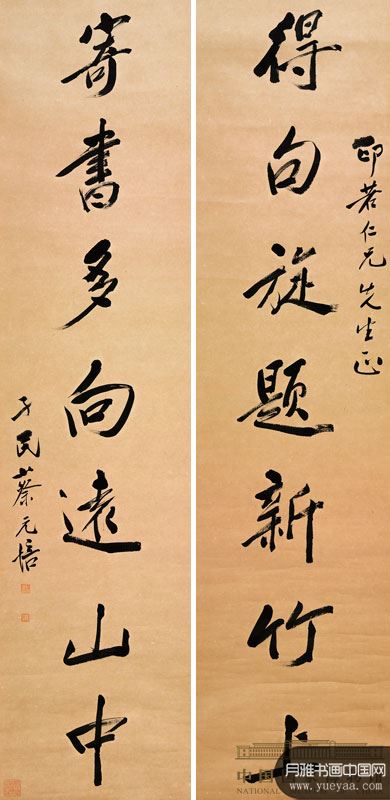 印若仁兄先生正
得句旋题新竹上
子民蔡元培
寄書多向遠山中
中国
NATIONAL
月雅书画中国网
www.yueyaa.com